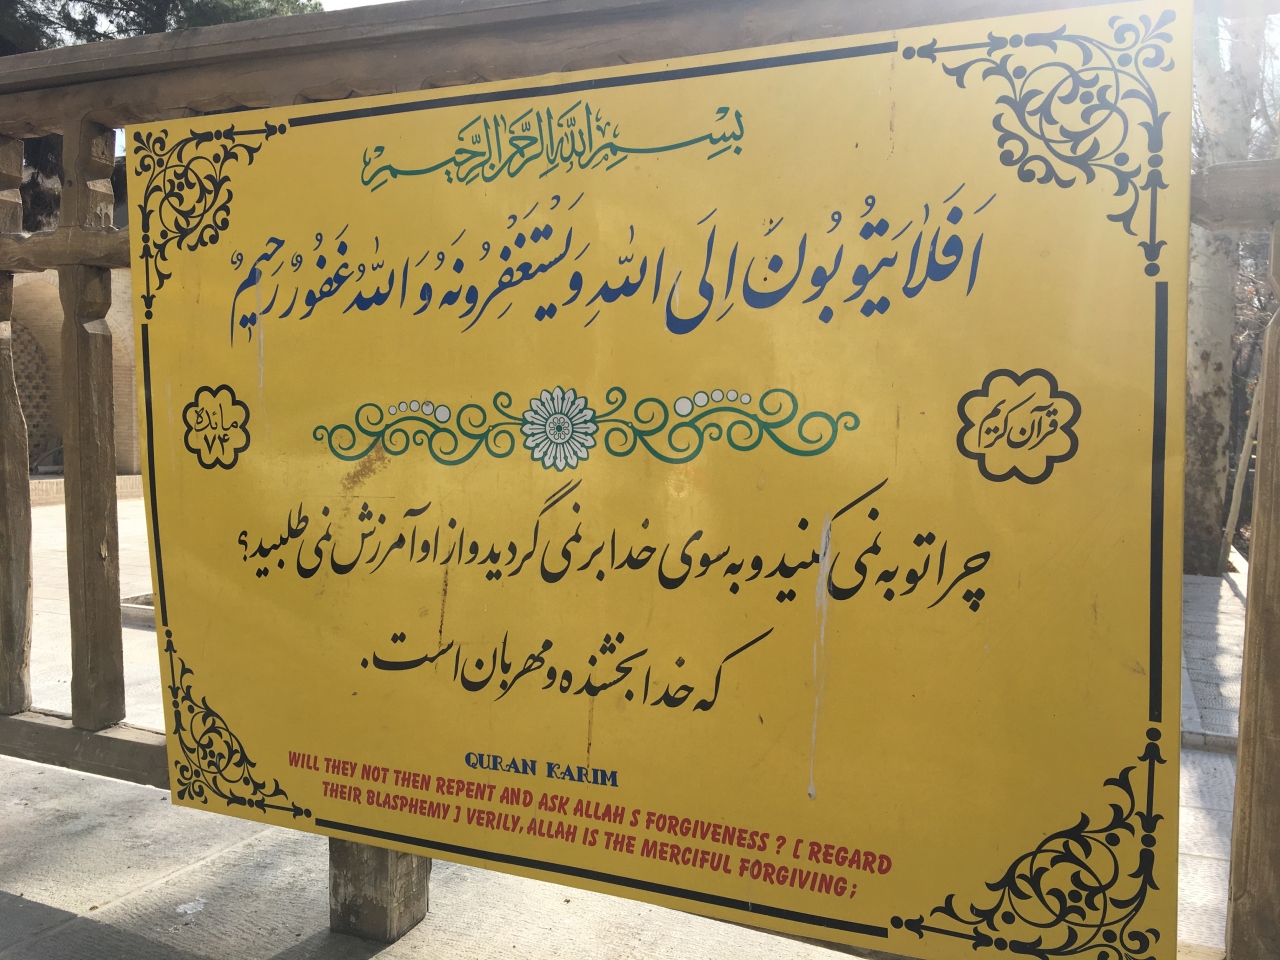 بِسْمِ اللهِ الرَّحْمٰنِ الرَّحِيمِ
اَفَلٰا يَتُوبُونَ اِلَى اللهِ وَ يَسْتَغْفِرُونَهُ وَ اللهُ غَفُورٌ رَحِيمٌ
قرآن کریم
مائده
۷۴
چرا توبه نمی کنید و به سوی خدا بر نمی گردید و از او آمرزش نمی طلبید؟
که خدا بخشنده و مهربان است.
QURAN KARIM
WILL THEY NOT THEN REPENT AND ASK ALLAH S FORGIVENESS ? [ REGARD
THEIR BLASPHEMY ] VERILY, ALLAH IS THE MERCIFUL FORGIVING;